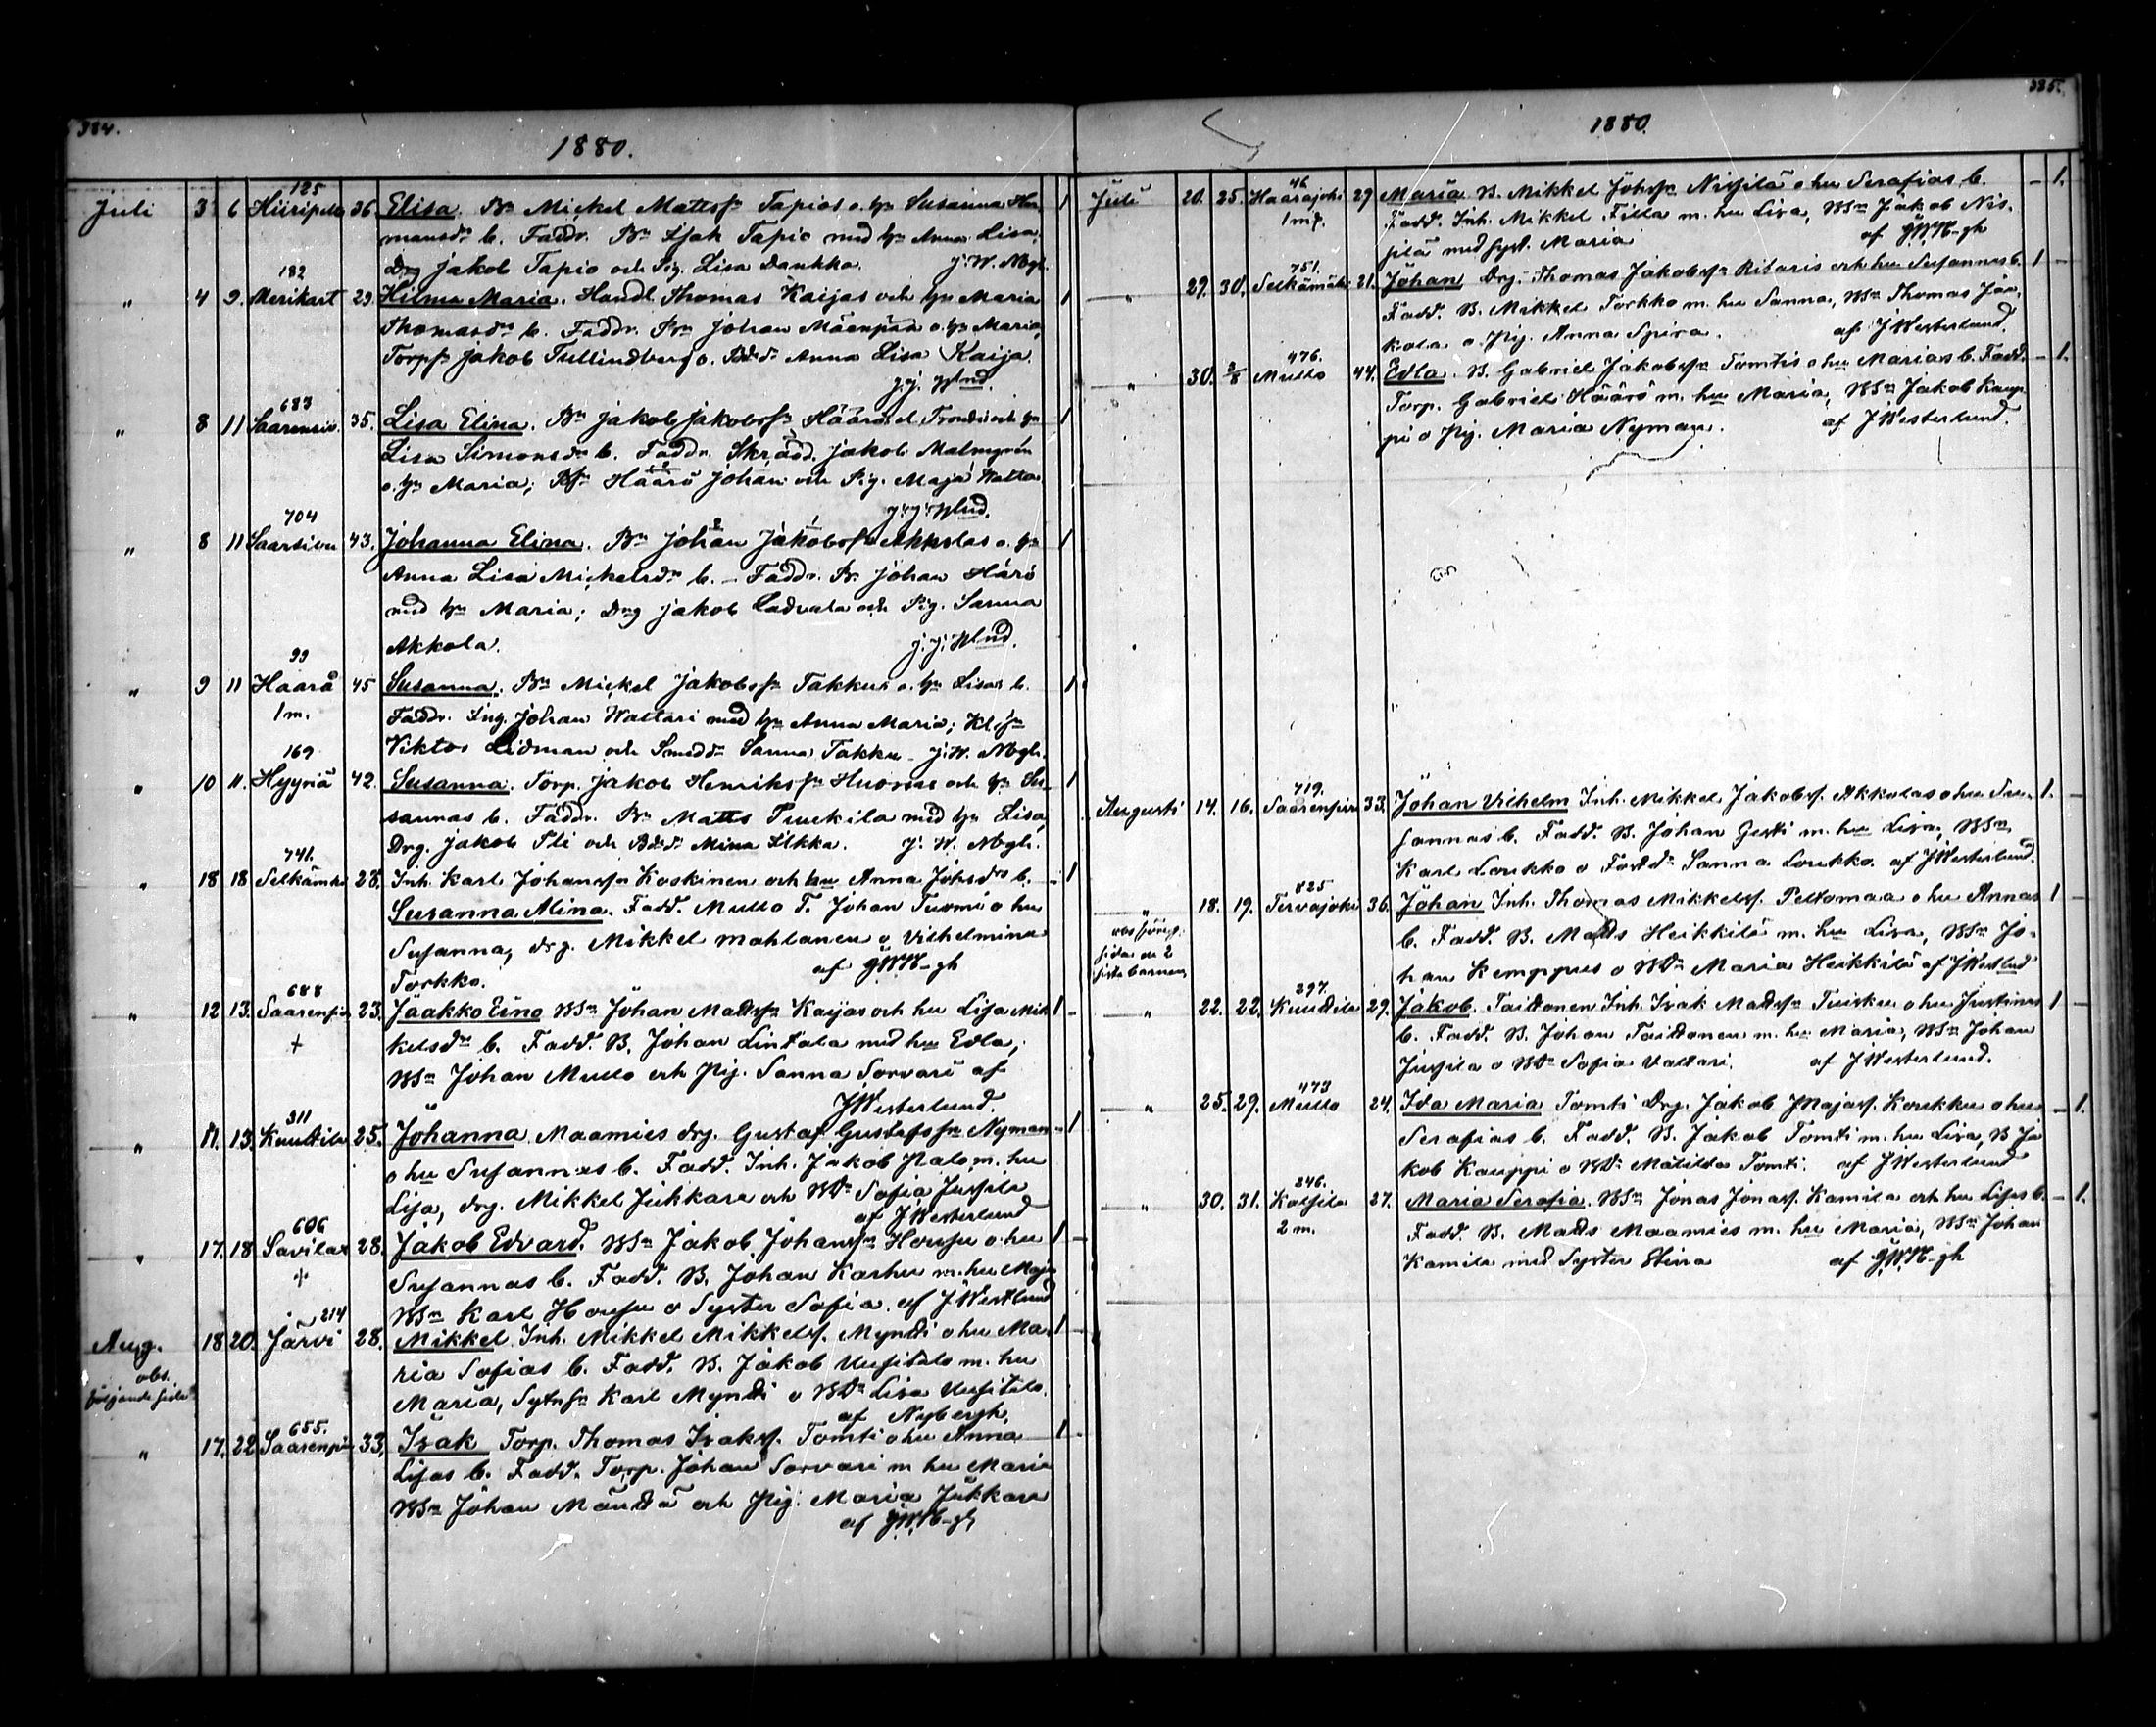 384.
1880.
125
Juli 3 6 Hiiripelto 36. Elisa. Bn Mickel Mattssn Tapios o. hu Susanna Her-
mansdr b. Faddr. Bn Isak Tapio med hu Anna Lisa,
Drg Jakob Tapio och Pig. Lisa Dankka. J. W. Nbgh.
182
" 4 9. Merikart 29. Hilma Maria. Handl. Thomas Kaijas och hu Maria
Thomasdr b. Faddr. Bn Johan Mäenpää o. hu Maria,
Torpsn Jakob Tullindberg o. Bdr Anna Lisa Kaija.
J.J. Wlnd.
683
" 8 11 Saarensiv. 35. Lisa Elina. Bn Jakob Jakobssn Häärö och hu
Lisa Simonsdr b. Faddr. Skrädd. Jakob Malmgrén
o. hu Maria; Bsn Häärö Johan och Pig. Maja Wattar
J.J. Wlnd.
704
" 8 11 Saarsivu 43. Johanna Elina. Bn Johan Jakobssn Akkolas o. hu
Anna Lisa Mickelsdr b. - Faddr. B. Johan Härö
med hu Maria; Drg Jakob Ladvala och Pig. Sanna
Akkola. J.J. Wlnd.
99
" 9 11 Haarå 45 Susanna. Bn Mickel Jakobssn Takkus o. hu Lisas b.
1 m. Faddr. Inh. Johan Wattari med hu Anna Maria;
Viktor Lidman och Smeddr Sanna Takku. J. W. Nbgh.
169
" 10 11. Hyyriä 42. Susanna. Torp. Jakob Henrikssn Huomas och hu Su-
sannas b. Faddr. Bn Matts Tuuckila med hu Lisa,
Drg. Jakob Yli och Bdr Mina Ilkka. J. W. Nbgh.
741.
" 18 18 Selkämä 28. Inh. Karl Johanssn Koskinen och hu Anna Johsdrs b.
Susanna Alina. Fadd. Mullo T. Johan Tuomi o hu
Susanna, drg. Mikkel Mahlanen o Vilhelmina
Torkko. af JWN-gh
688
" 12 13. Saarensiv 23. Jaakko Eino Bsn Johan Mattssn Kaijas och hu Lisa Mik-
+ kelsdrs b. Fadd. B. Johan Lintala med hu Edla,
Bsn Johan Mullo och Pig. Sanna Sorvari af
JWesterlund.
311
" 11. 13. Knuuttila 25. Johanna Maamies drg. Gustaf Gustafssn Nyman
o hu Susannas b. Fadd. Inh. Jakob Palo m. hu
Lisa, drg. Mikkel Jukkara och Bdr Sofia Jussila
af JWesterlund
606
" 17. 18. Savilax 28. Jakob Edvard. Bsn Jakob Johanssn Houšu o hu
+ Susannas b. Fadd. B. Johan Karhu m. hu Maja
Bsn Karl Housu o Syster Sofia. af JWestlund
214
Aug. 18 20. Järvi 28. Mikkel Inh. Mikkel Mikkelss. Mynti o hu Ma-
obs. ria Sofias b. Fadd. B. Jakob Uusitalo m. hu
följande sida Maria, Sytnsn Karl Mynti o Bdr Lisa Uusitalo.
af Nybergh.
655.
" 17. 22. Saarenpä 33. Isak Torp. Thomas Isakss. Tomti o hu Anna
Lisas b. Fadd. Torp. Johan Sorvari m hu Maria
Bsn Johan Mänttä och Pig. Maria Jukkara
af JWN-gh
385.
1880.
46
Juli 20. 25. Haarajoki 29 Maria B. Mikkel Johssn Nissilä o hu Serafias b. - 1.
1 mf. Fadd. Inh. Mikkel Filla m. hu Lisa, Bsn Jakob Nis-
silä med syst. Maria af JWN-gh
751.
" 29. 30. Selkämäki 21. Johan Drg. Thomas Jakobssn Ritaris och hu Susannas b. 1 -
Fadd. B. Mikkel Torkko m. hu Sanna, Bsn Thomas Jaa-
kola o Pig. Anna Spira. af JWesterlund.
476.
" 30. 2/8 Mullo 44. Edla. B. Gabriel Jakobssn Tomtis o hu Marias b. Fadd. - 1.
Torp. Gabriel Häärö m. hu Maria, Bsn Jakob Kaup-
pi o Pig. Maria Nyman. af JWesterlund.
719.
Augusti 14. 16. Saarenpää 33. Johan Vilhelm Inh. Mikkel Jakobss. Akkolas o hu Su- 1. -
sannas b. Fadd. B. Johan Gesti m. hu Lisa, Bsn
Karl Loukko o Sanna Loukko. af JWesterlund.
825
" 18. 19. Tervajoki 36. Johan Inh. Thomas Mikkelss. Peltomaa o hu Annas 1 -
obs föreg. b. Fadd. B. Matts Heikkilä m. hu Lisa, Bsn Jo-
sida de 2 han Kemppus o Bdr Maria Heikkilä af JWestlund
sista barnen
297.
" 22. 22. Knuttila 29. Jakob. Taittonen Inh. Isak Mattssn Tuisku o hu Justinas 1 -
b. Fadd. B. Johan Taittonen m. hu Maria, Bsn Johan
Jussila o Bdr Sofia Valtari. af JWesterlund.
473
" 25. 29. Mullo 24. Ida Maria Tomti Drg. Jakob Majass. Koukku o hu - 1.
Serafias b. Fadd. B. Jakob Tomti m. hu Lisa, B Ja
kob Kauppi o Bdr Matilda Tomti. af JWesterlund
246.
" 30. 31. Kalsila 27. Maria Serafia. Bsn Jonas Jonass. Kamila och hu Lisas b. - 1.
2 m. Fadd. B. Matts Maamies m. hu Maria, Bsn Johan
Kamila med Syster Stina af JWN-gh